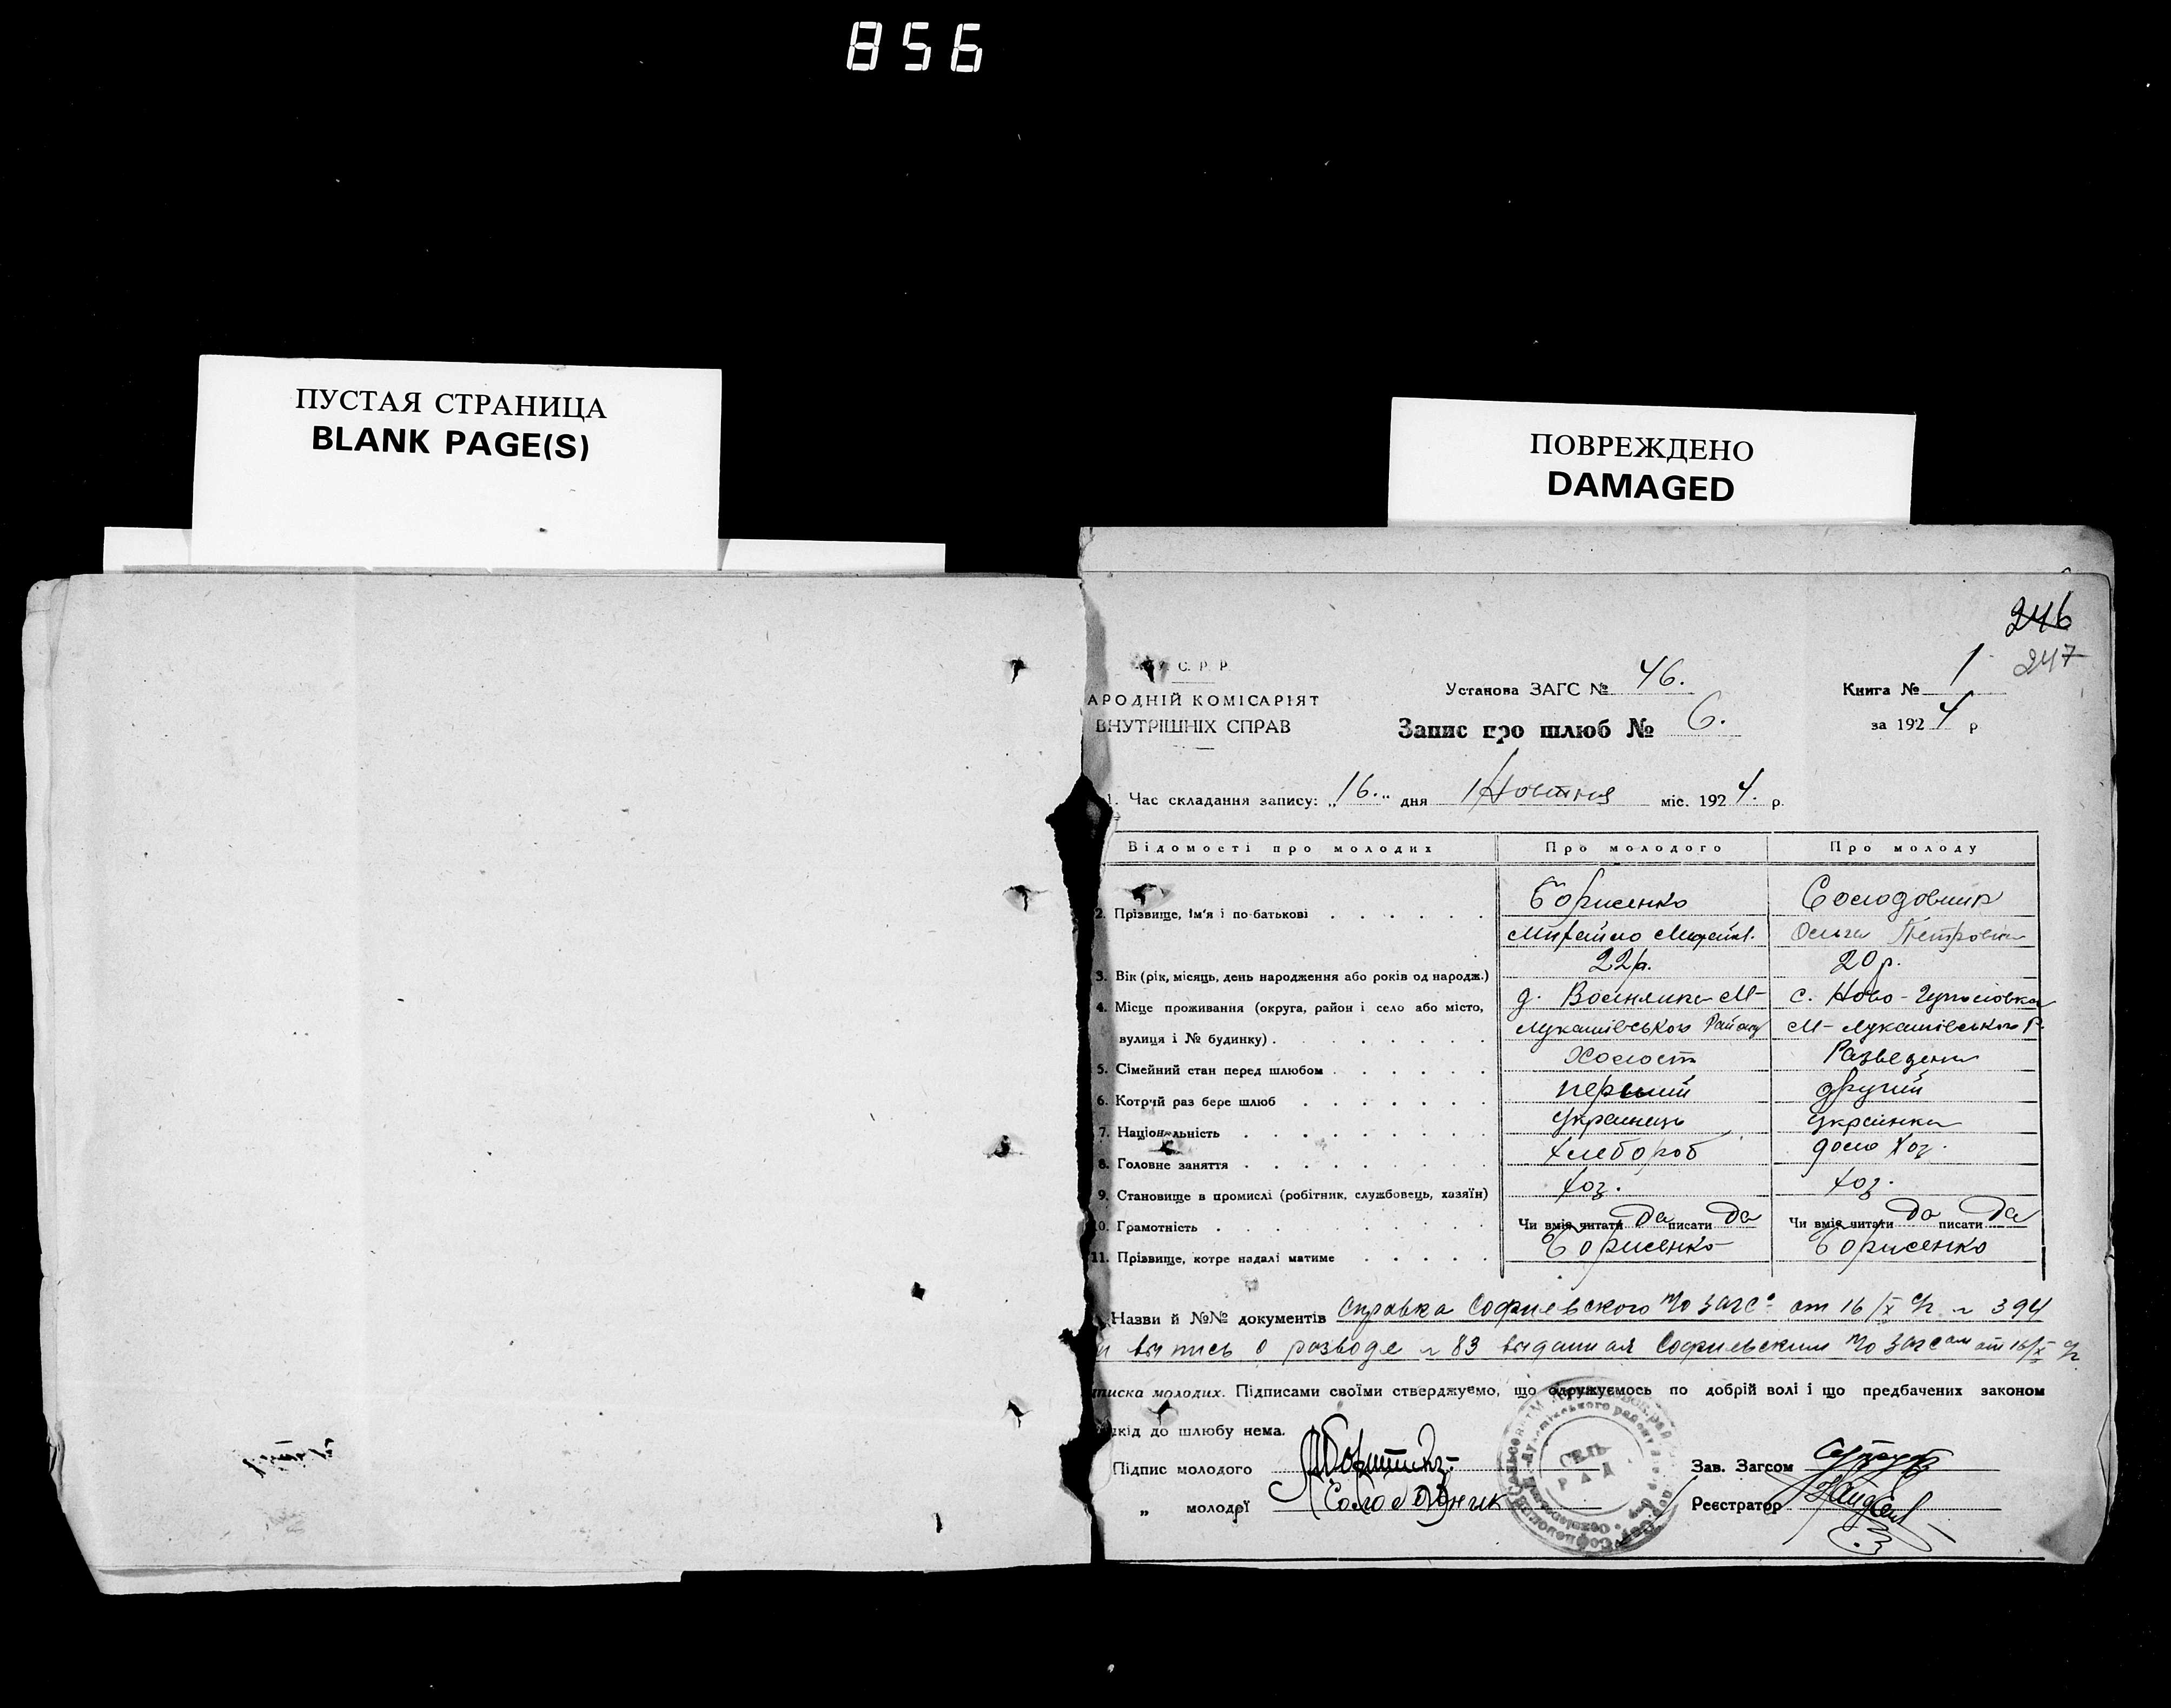 856
ПУСТАЯ СТРАНИЦА
BLANK PAGE(S)
ПОВРЕЖДЕНО
DAMAGED
246
247
У. С. Р. Р.
АРОДНІЙ КОМІСАРІЯТ
ВНУТРІШНІХ СПРАВ
Установа ЗАГС № 46.
Книга № 1
Запис про шлюб № 6.
за 1924 р
1. Час складання запису: „16.“ дня Жовтня міс. 1924. р.
Відомості про молодих Про молодого Про молоду
2. Прізвище, ім'я і по-батькові Борисенко Солодовник
Михайло Михайл. Ольги Петровна
3. Вік (рік, місяць, день народження або років од народж.) 22р. 20р.
4. Місце проживання (округа, район і село або місто, д. М- с. Ново-
вулиця і № будинку) Лукашівського Району М-Лукашівського Р.
5. Сімейний стан перед шлюбом Холост Разведена
6. Котрий раз бере шлюб перший другий
7. Національність Украинець Украінка
8. Головне заняття хлебороб домо хоз.
9. Становище в промислі (робітник, службовець, хазяїн) хоз. хоз.
10. Грамотність Чи вміє читати Да писати Да Чи вміє читати Да писати Да
11. Прізвище, котре надалі матиме Борисенко Борисенко
Назви й №№ документів Справка Софиевского загс от 16/X № 394
и выпись о разводе № 83 выданная Софиевским загсом от 16/X
писка молодих. Підписами своїми стверджуємо, що одружуємось по добрій волі і що предбачених законом
кід до шлюбу нема.
Підпис молодого
Зав. Загсом
„ молодої Солодовник
Реєстратор
СЕЛЬ
РАД